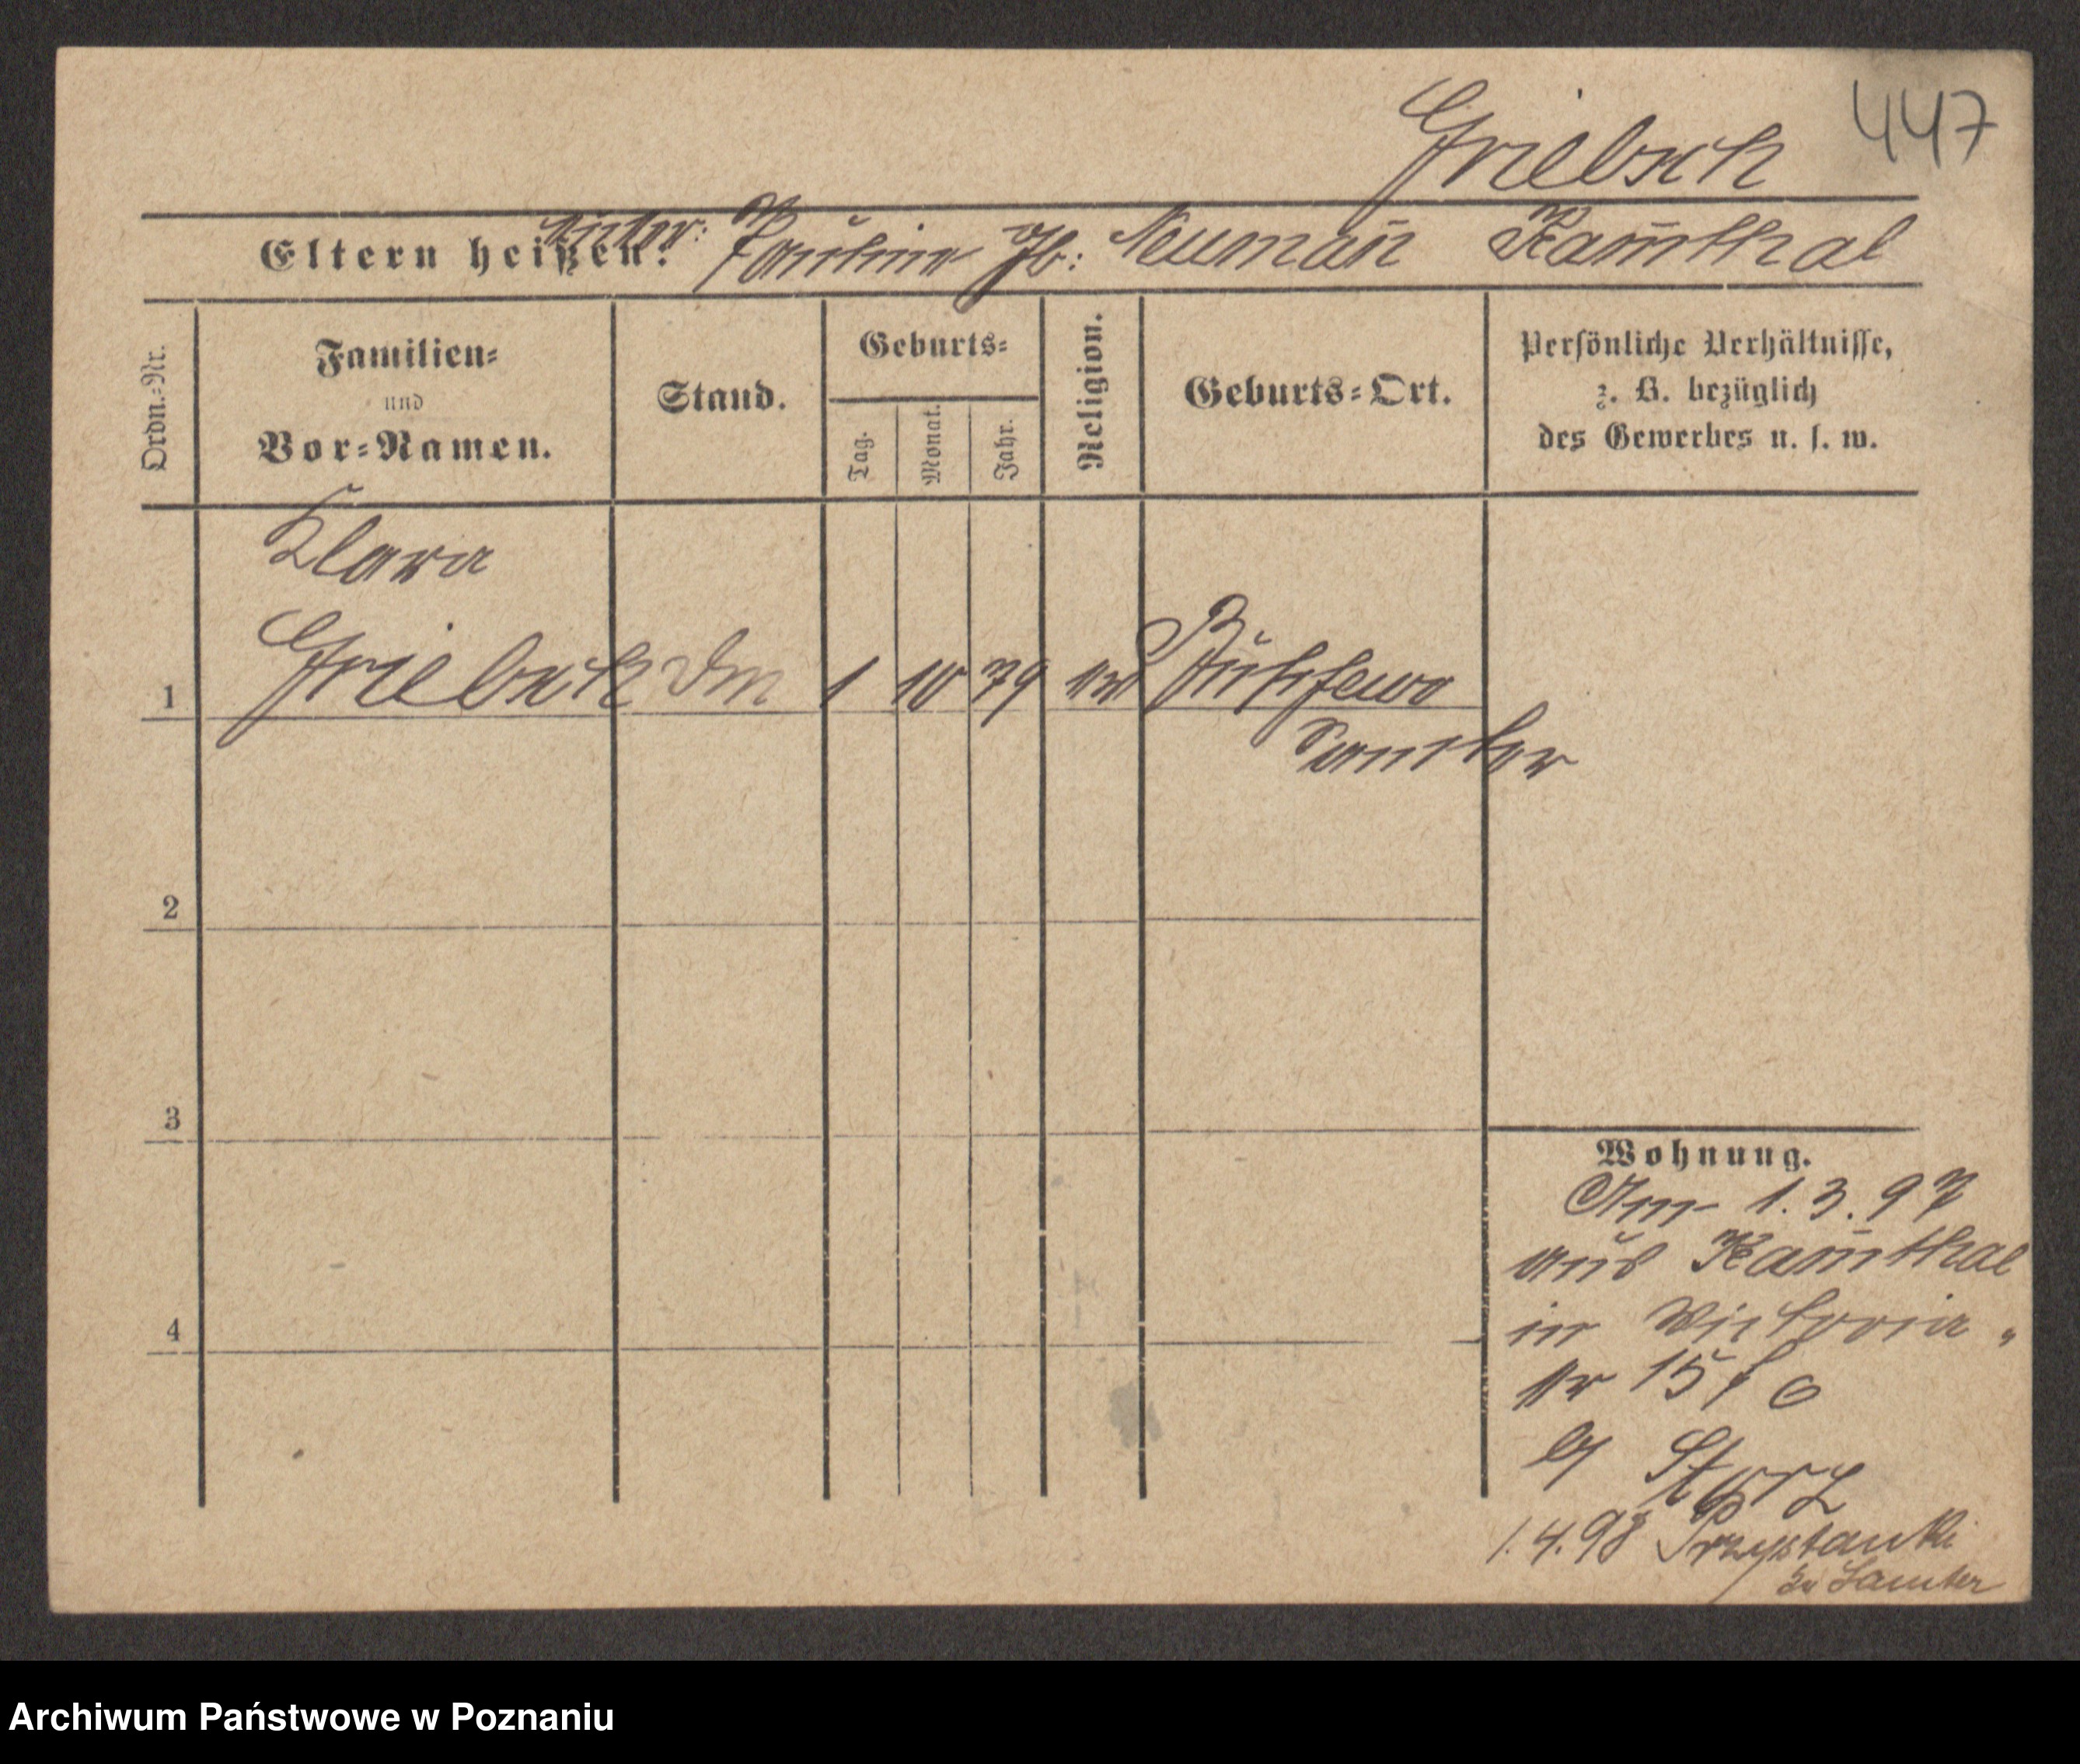 447
Griebsch
Eltern heißen: Mutter: Pauline Gb: Neumañ Kam̄thal
Ordn.=Nr.
Familien=
und
Vor=Namen.
Stand.
Geburts=
Tag.
Monat.
Jahr.
Religion.
Geburts=Ort.
Persönliche Verhältnisse,
z. B. bezüglich
des Gewerbes u. s. w.
Klara
1 Griebsch Dm 1 10 79 ev
Samter
2
3
4
Wohnung.
Am 1.3.97
aus Kam̄thal
in Victoria
Nr 15
by Storz
1.4.98 Przystanki
Samter
Archiwum Państwowe w Poznaniu